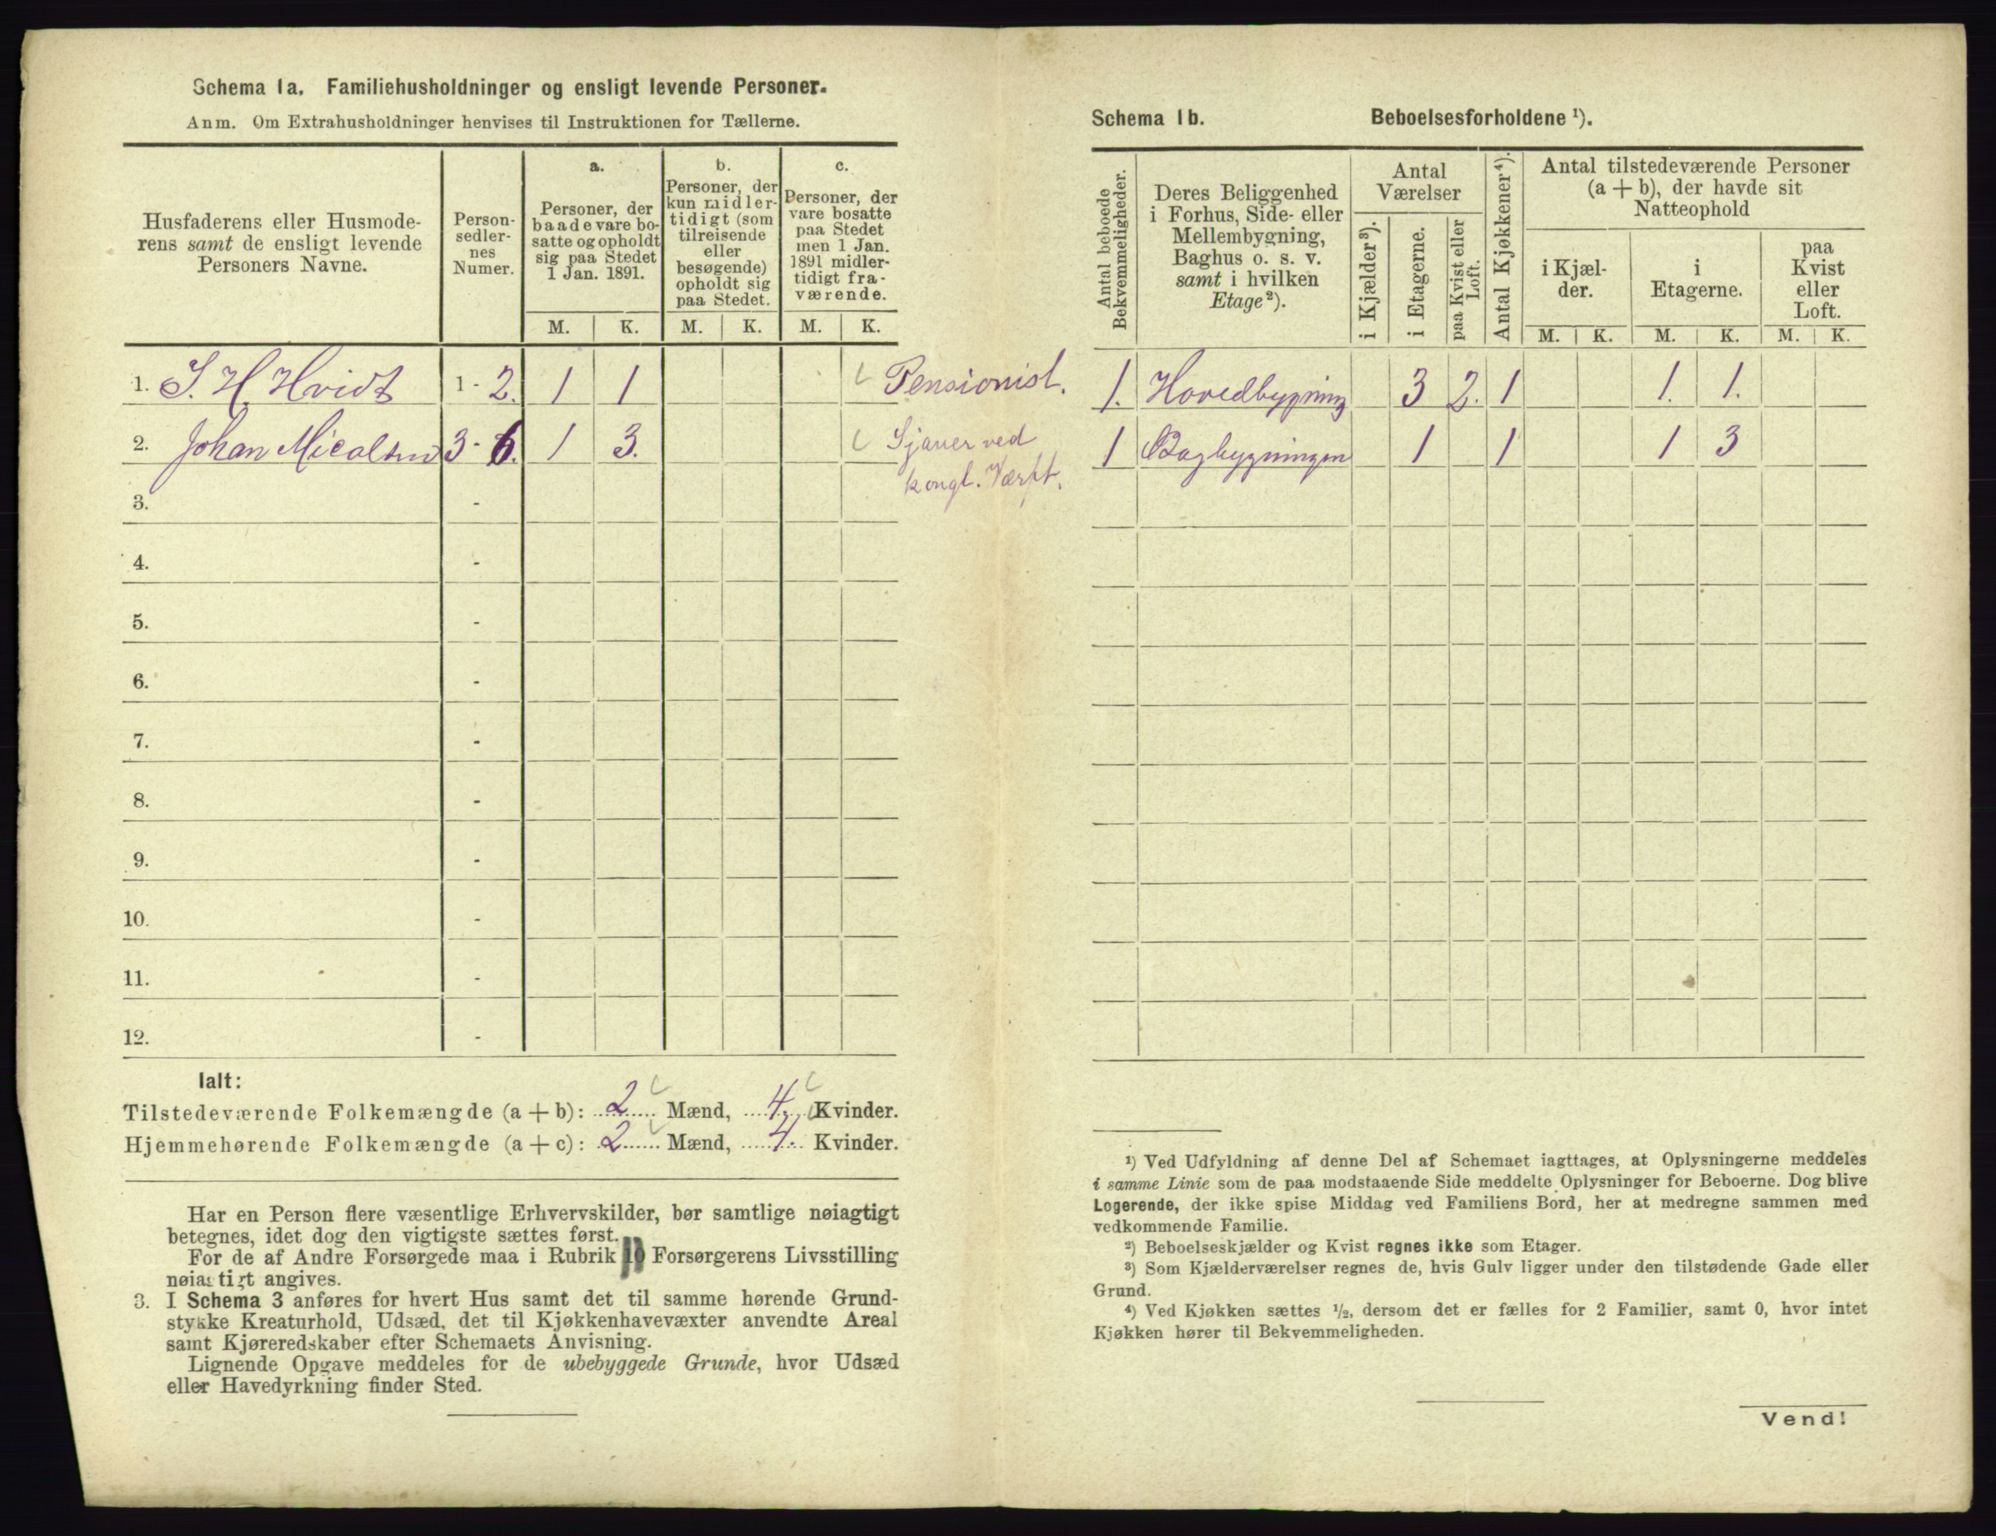 Schema 1a. Familiehusholdninger og ensligt levende Personer.
Anm. Om Extrahusholdninger henvises til Instruktionen for Tællerne.
Husfaderens eller Husmode-
rens samt de ensligt levende
Personers Navne.
Person-
sedler-
nes
Numer.
a.
Personer, der
baade vare bo-
satte og opholdt
sig paa Stedet
1 Jan. 1891.
b.
Personer, der
kun midler-
tidigt (som
tilreisende
eller
besøgende)
opholdt sig
paa Stedet.
c.
Personer, der
vare bosatte
paa Stedet
men 1 Jan.
1891 midler-
tidigt fra-
værende.
M. K. M. K. M. K.
1. S. H. Hvidt 1 - 2. 1 1 Pensionist.
2. Johan Micalsen 3 - 6. 1 3. Sjauer ved
kongl. Værft.
3. -
4. -
5. -
6. -
7. -
8. -
9. -
10. -
11. -
12. -
Ialt:
Tilstedeværende Folkemængde (a + b): 2 Mænd, 4. Kvinder.
Hjemmehørende Folkemængde (a + c): 2 Mænd, 4. Kvinder.
Har en Person flere væsentlige Erhvervskilder, bør samtlige nøiagtigt
betegnes, idet dog den vigtigste sættes først.
For de af Andre Forsørgede maa i Rubrik 10 Forsørgerens Livsstilling
nøiagtigt angives.
3. I Schema 3 anføres for hvert Hus samt det til samme hørende Grund-
stykke Kreaturhold, Udsæd, det til Kjøkkenhavevæxter anvendte Areal
samt Kjøreredskaber efter Schemaets Anvisning.
Lignende Opgave meddeles for de ubebyggede Grunde, hvor Udsæd
eller Havedyrkning finder Sted.
Schema 1b. Beboelsesforholdene ¹).
Antal beboede
Bekvemmeligheder.
Deres Beliggenhed
i Forhus, Side- eller
Mellembygning,
Baghus o. s. v.
samt i hvilken
Etage ²).
Antal
Værelser
i Kjælder ³).
i Etagerne.
paa Kvist eller
Loft.
Antal Kjøkkener ⁴).
Antal tilstedeværende Personer
(a + b), der havde sit
Natteophold
i Kjæl-
der.
i
Etagerne.
paa
Kvist
eller
Loft.
M. K. M. K. M. K.
1. Hovedbygning 3 2. 1 1. 1.
1 Bagbygningen 1 1 1 3
¹) Ved Udfyldning af denne Del af Schemaet iagttages, at Oplysningerne meddeles
i samme Linie som de paa modstaaende Side meddelte Oplysninger for Beboerne. Dog blive
Logerende, der ikke spise Middag ved Familiens Bord, her at medregne sammen med
vedkommende Familie.
²) Beboelseskjælder og Kvist regnes ikke som Etager.
³) Som Kjælderværelser regnes de, hvis Gulv ligger under den tilstødende Gade eller
Grund.
⁴) Ved Kjøkken sættes ½, dersom det er fælles for 2 Familier, samt 0, hvor intet
Kjøkken hører til Bekvemmeligheden.
Vend!